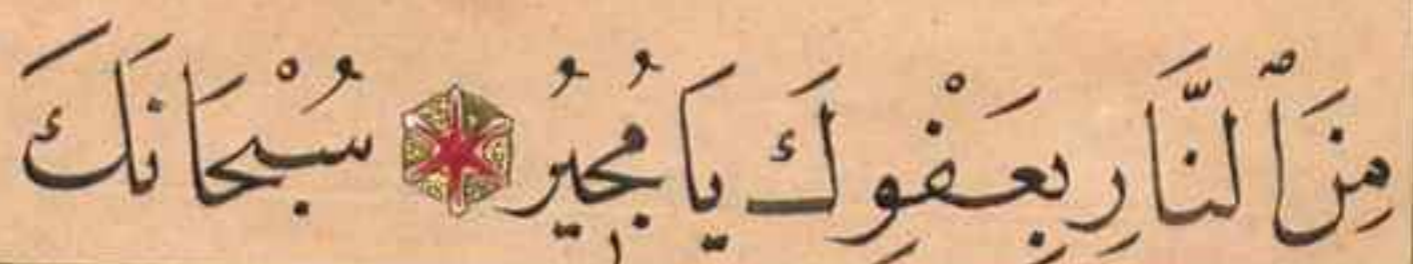 مِنَ ٱلنَّارِ بِعَفْوِكَ يَا مُجِيرُ سُبْحَانَكَ